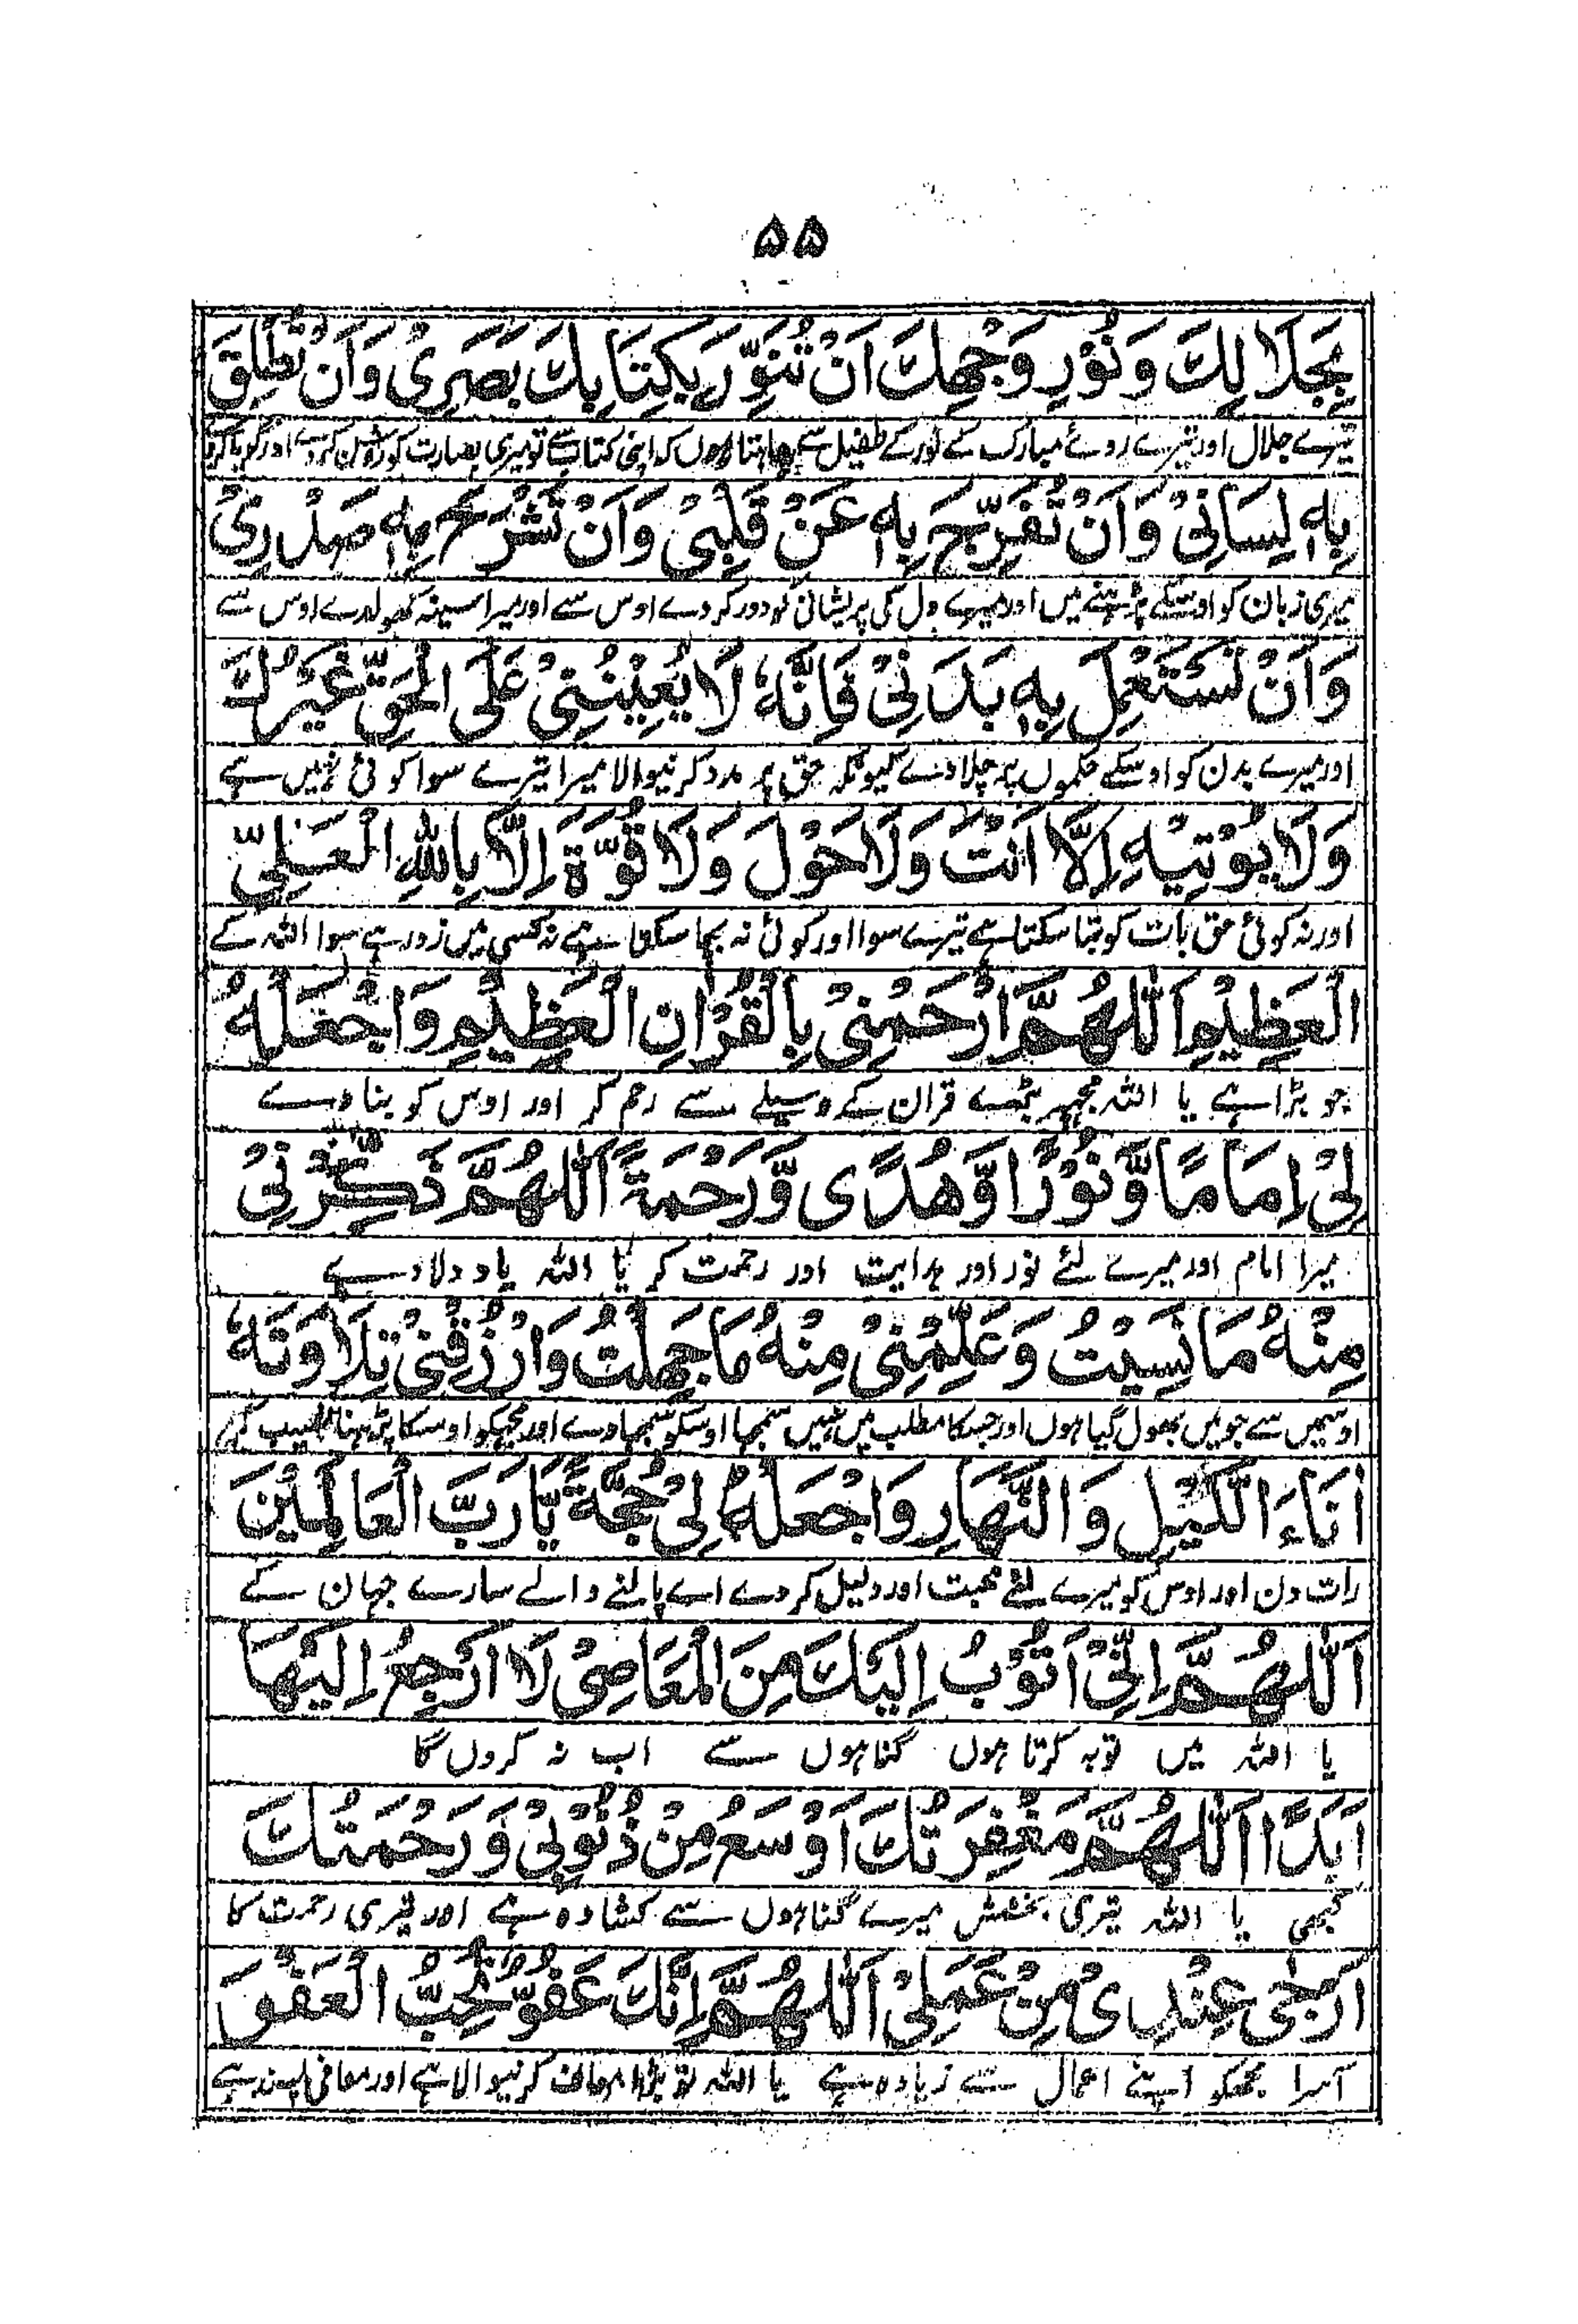 ۵۵
بِجَلَالِكَ وَنُوْرِ وَجْهِكَ اَنْ تُنَوِّرَ بِكِتَابِكَ بَصَرِىْ وَاَنْ تُطْلِقَ
تیرے جلال اور تیرے روئے مبارک کے نور کے طفیل سے چاہتا ہوں کہ اپنی کتاب سے تو میری بصارت کو روشن کر دے اور گویا کر دے
بِهٖ لِسَانِىْ وَاَنْ تُفَرِّجَ بِهٖ عَنْ قَلْبِىْ وَاَنْ تَشْرَحَ بِهٖ صَدْرِىْ
میری زبان کو اوسکے پڑہنے میں اور میرے دل کی پریشانی کو دور کر دے اوس سے اور میرا سینہ کھولدے اوس سے
وَاَنْ تَسْتَعْمِلَ بِهٖ بَدَنِىْ فَاِنَّهٗ لَا يُعِيْنُنِىْ عَلَى الْحَقِّ غَيْرُكَ
اور میرے بدن کو اوسکے حکموں پہ چلا دے کیونکہ حق پر مدد کرنیوالا میرا تیرے سوا کوئی نہیں ہے
وَلَا يُؤْتِيْهِ اِلَّا اَنْتَ وَلَا حَوْلَ وَلَا قُوَّةَ اِلَّا بِاللّٰهِ الْعَلِىِّ
اور نہ کوئی حق بات کو بتا سکتا ہے تیرے سوا اور کوئی نہ بچا سکتا ہے نہ کسی میں زور ہے سوا اللہ کے
الْعَظِيْمِ اَللّٰهُمَّ ارْحَمْنِىْ بِالْقُرْاٰنِ الْعَظِيْمِ وَاجْعَلْهُ
جو بڑا ہے یا اللہ مجہپر بڑے قران کے وسیلے سے رحم کر اور اوس کو بنا دے
لِىْ اِمَامًا وَّنُوْرًا وَّهُدًى وَّرَحْمَةً اَللّٰهُمَّ ذَكِّرْنِىْ
میرا امام اور میرے لئے نور اور ہدایت اور رحمت کر یا اللہ یاد دلا دے
مِنْهُ مَا نَسِيْتُ وَعَلِّمْنِىْ مِنْهُ مَا جَهِلْتُ وَارْزُقْنِىْ تِلَاوَتَهٗ
اوسمیں سے جو میں بھول گیا ہوں اور جسکا مطلب میں نہیں سمجہا اوسکو سمجہا دے اور مجہکو اوسکا پڑہنا نصیب کر
اٰنَاءَ الَّيْلِ وَالنَّهَارِ وَاجْعَلْهُ لِىْ حُجَّةً يَّارَبَّ الْعَالَمِيْنَ
رات دن اور اوس کو میرے لئے حجت اور دلیل کر دے اے پالنے والے سارے جہان کے
اَللّٰهُمَّ اِنِّىْ اَتُوْبُ اِلَيْكَ مِنَ الْمَعَاصِىْ لَا اَرْجِعُ اِلَيْهَا
یا اللہ میں توبہ کرتا ہوں گناہوں سے اب نہ کروں گا
اَبَدًا اَللّٰهُمَّ مَغْفِرَتُكَ اَوْسَعُ مِنْ ذُنُوْبِىْ وَرَحْمَتُكَ
کبھی یا اللہ تیری بخشش میرے گناہوں سے کشادہ ہے اور تیری رحمت کا
اَرْجٰى عِنْدِىْ مِنْ عَمَلِىْ اَللّٰهُمَّ اِنَّكَ عَفُوٌّ تُحِبُّ الْعَفْوَ
آسرا مجھکو اپنے اعمال سے زیادہ ہے یا اللہ تو بڑا معاف کرنیوالا ہے اور معافی پسند ہے